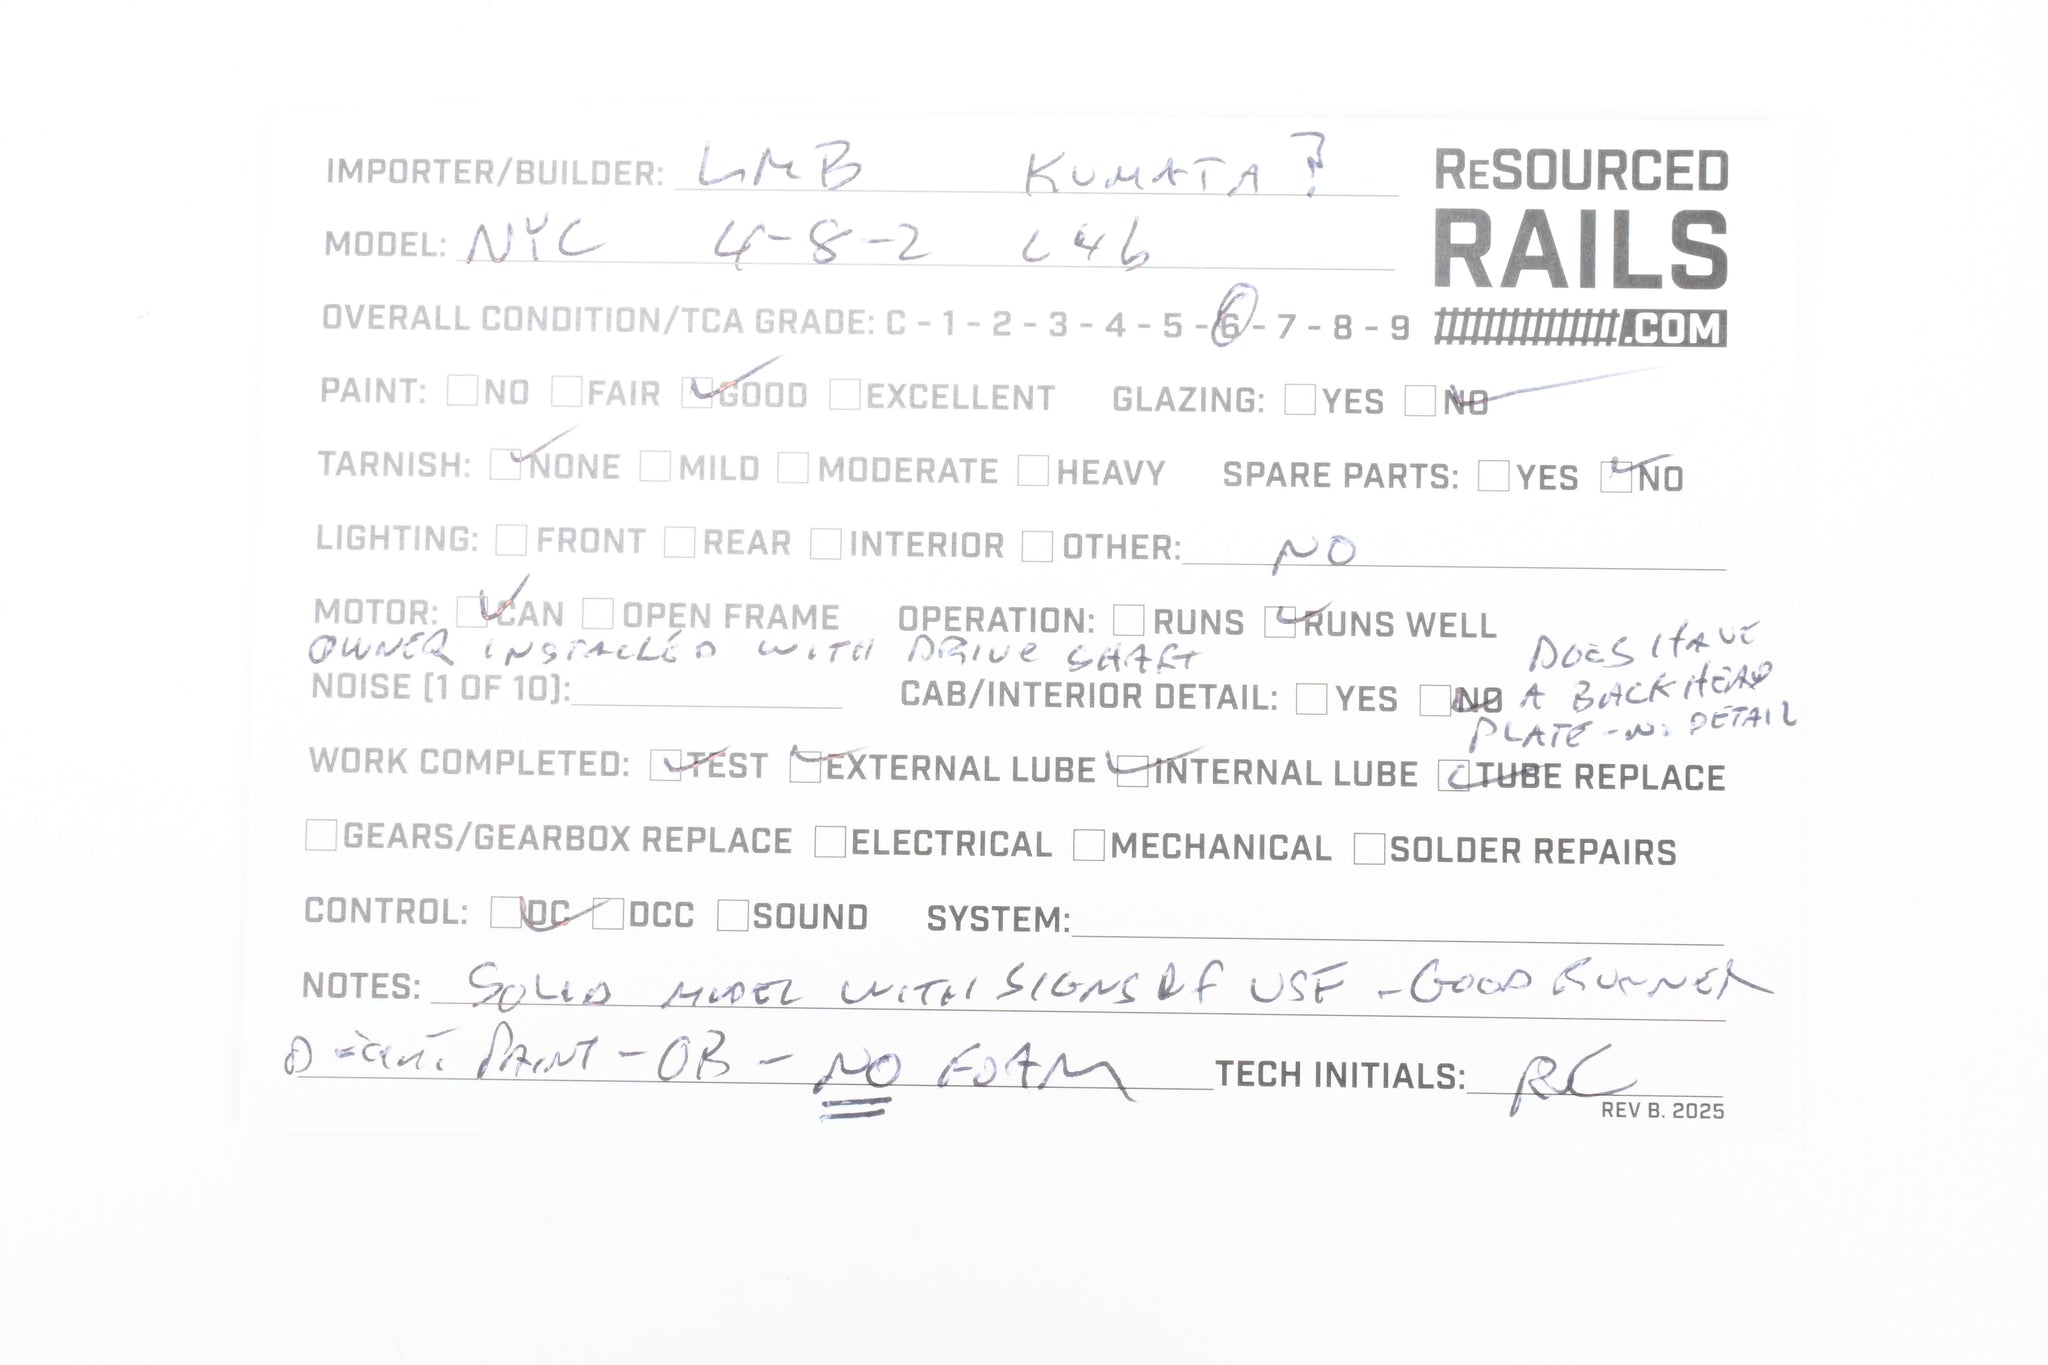 IMPORTER/BUILDER: LMB KUMATA?
ReSOURCED
RAILS
.COM
MODEL: NYC 4-8-2 L4b
OVERALL CONDITION/TCA GRADE: C - 1 - 2 - 3 - 4 - 5 - 6 - 7 - 8 - 9
PAINT: NO FAIR GOOD EXCELLENT GLAZING: YES NO
TARNISH: NONE MILD MODERATE HEAVY SPARE PARTS: YES NO
LIGHTING: FRONT REAR INTERIOR OTHER: NO
MOTOR: CAN OPEN FRAME OPERATION: RUNS RUNS WELL
OWNER INSTALLED WITH DRIVE SHAFT
NOISE (1 OF 10): CAB/INTERIOR DETAIL: YES NO
DOES HAVE
A BACKHEAD
PLATE - NO DETAIL
WORK COMPLETED: TEST EXTERNAL LUBE INTERNAL LUBE TUBE REPLACE
GEARS/GEARBOX REPLACE ELECTRICAL MECHANICAL SOLDER REPAIRS
CONTROL: DC DCC SOUND SYSTEM:
NOTES: SOLID MODEL WITH SIGNS OF USE - GOOD RUNNER
PAINT - OB - NO FOAM TECH INITIALS: RC
REV B. 2025